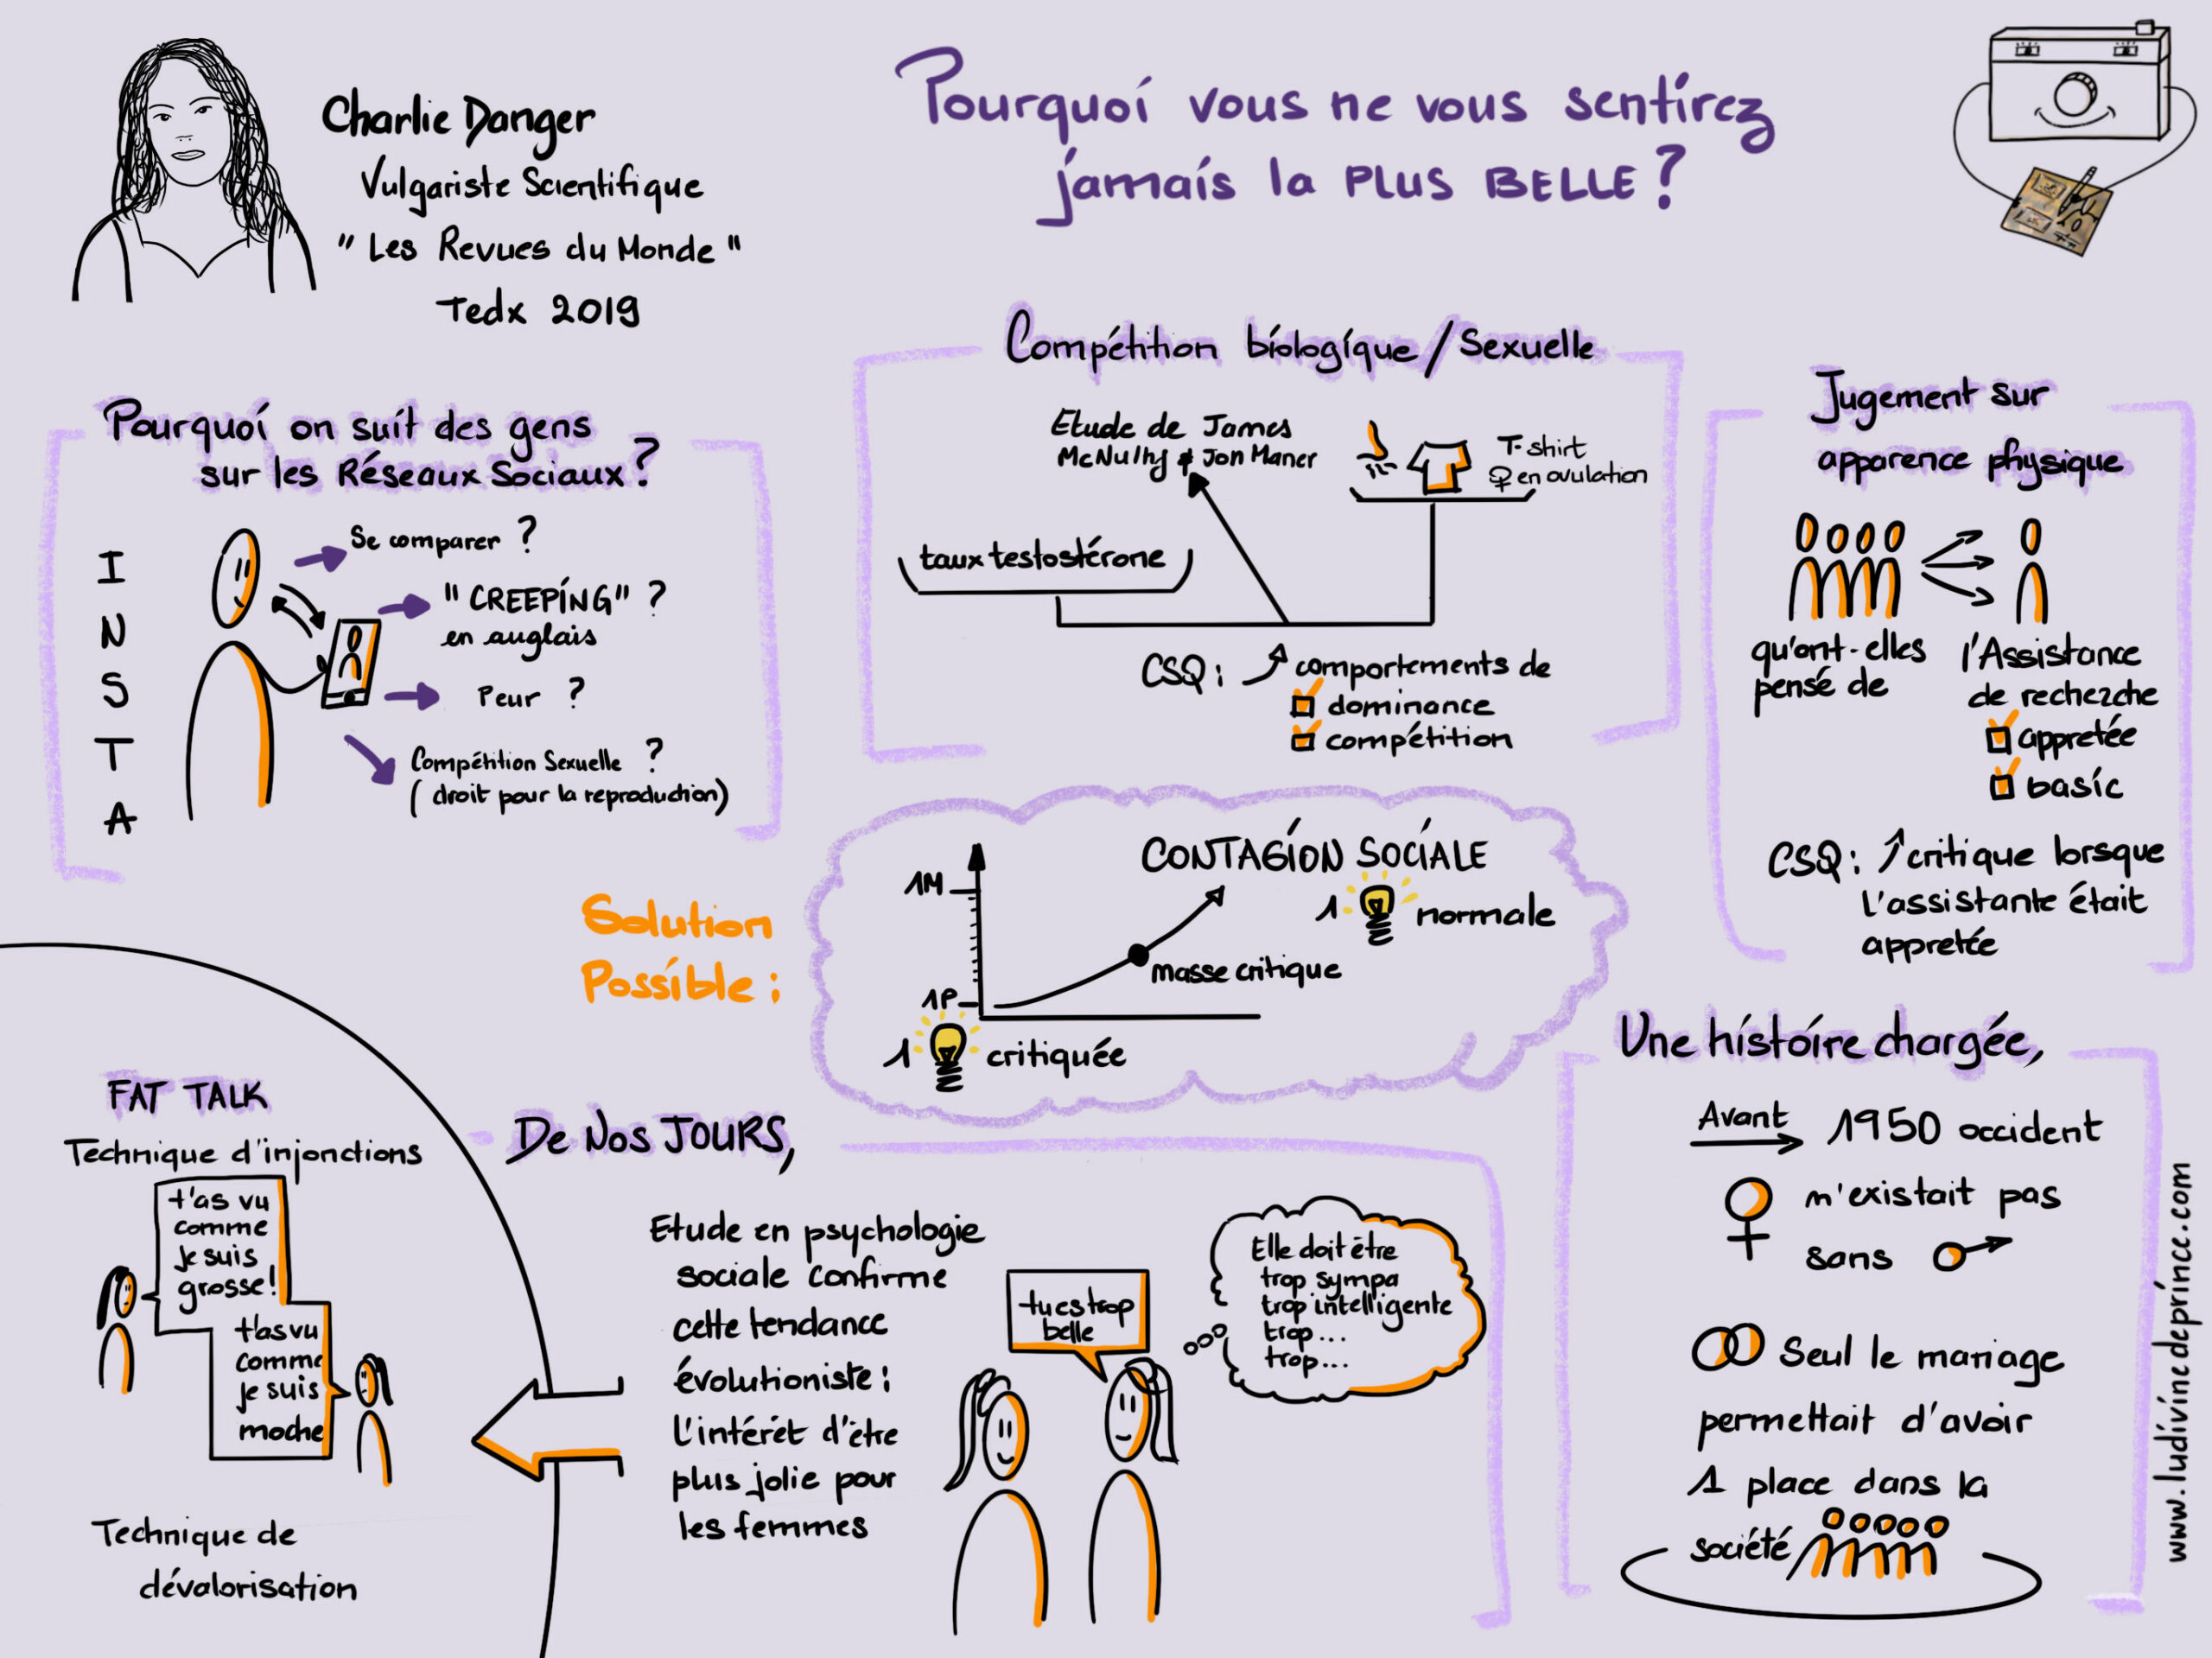 Charlie Danger
Vulgariste Scientifique
" Les Revues du Monde "
Tedx 2019
Pourquoi vous ne vous sentirez
jamais la PLUS BELLE ?
Pourquoi on suit des gens
sur les Réseaux Sociaux ?
INSTA
Se comparer ?
" CREEPING" ?
en anglais
Peur ?
Compétition Sexuelle ?
( droit pour la reproduction)
Compétition biologique / Sexuelle
Etude de James
McNulhy & Jon Maner
T-shirt
♀ en ovulation
taux testostérone
CSQ : comportements de
dominance
compétition
Jugement sur
apparence physique
qu'ont-elles
pensé de
l'Assistance
de recherche
appretée
basic
CSQ : critique lorsque
l'assistante était
appretée
Solution
Possible :
CONTAGION SOCIALE
1M
1 normale
masse critique
1P
1 critiquée
Une histoire chargée,
Avant 1950 occident
n'existait pas
sans
Seul le mariage
permettait d'avoir
1 place dans la
société
FAT TALK
Technique d'injonctions
t'as vu
comme
je suis
grosse!
t'as vu
comme
je suis
moche
Technique de
dévalorisation
De Nos JOURS,
Etude en psychologie
sociale confirme
cette tendance
évolutioniste :
l'intérêt d'être
plus jolie pour
les femmes
tu es trop
belle
Elle doit être
trop sympa
trop intelligente
trop ...
trop ...
www.ludivinedeprince.com